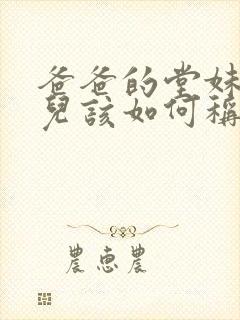 爸爸的堂妹
兒該如何稱
農惠農